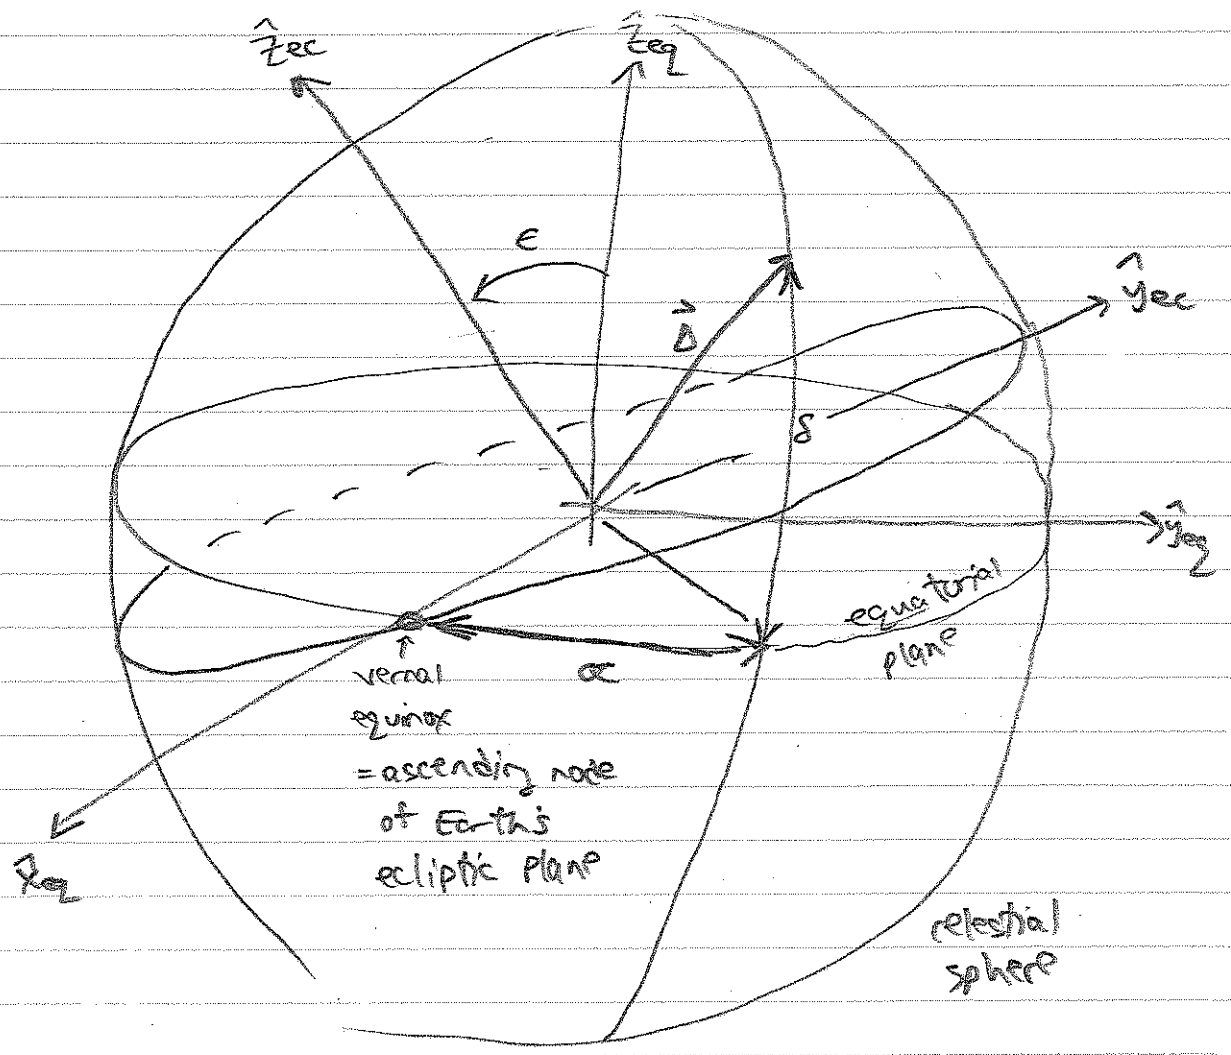 ẑec
ẑeq
ε
ŷec
Δ⃗
δ
ŷeq
equatorial
plane
α
vernal
equinox
=ascending node
of Earth's
ecliptic plane
x̂eq
celestial
sphere